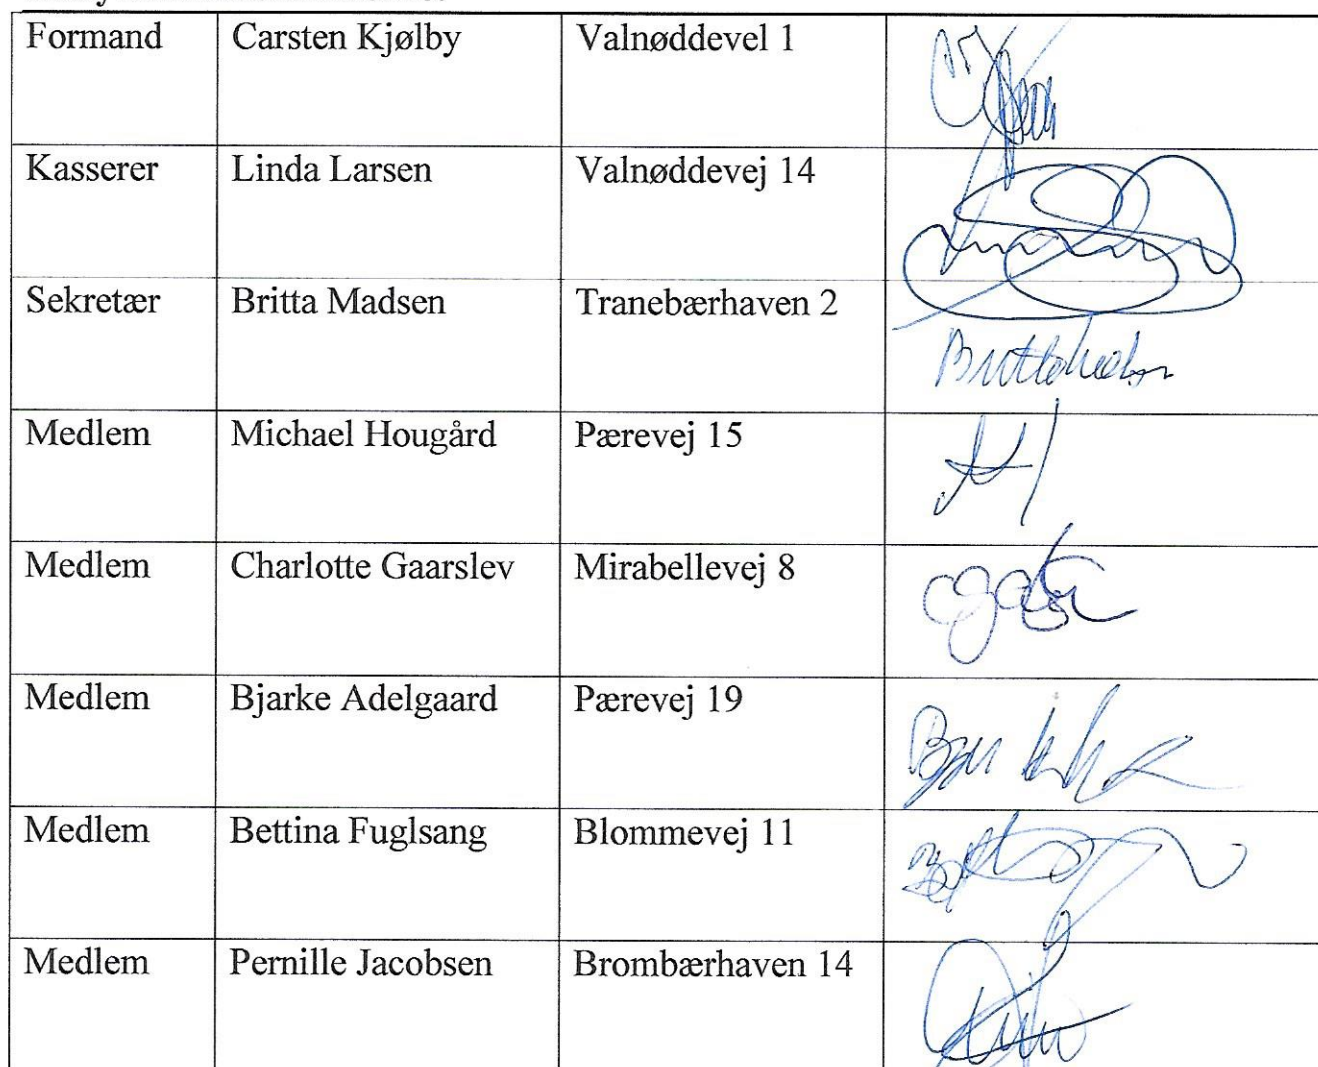 Formand Carsten Kjølby Valnøddevel 1
Kasserer Linda Larsen Valnøddevej 14
Sekretær Britta Madsen Tranebærhaven 2
Medlem Michael Hougård Pærevej 15
Medlem Charlotte Gaarslev Mirabellevej 8
Medlem Bjarke Adelgaard Pærevej 19
Medlem Bettina Fuglsang Blommevej 11
Medlem Pernille Jacobsen Brombærhaven 14